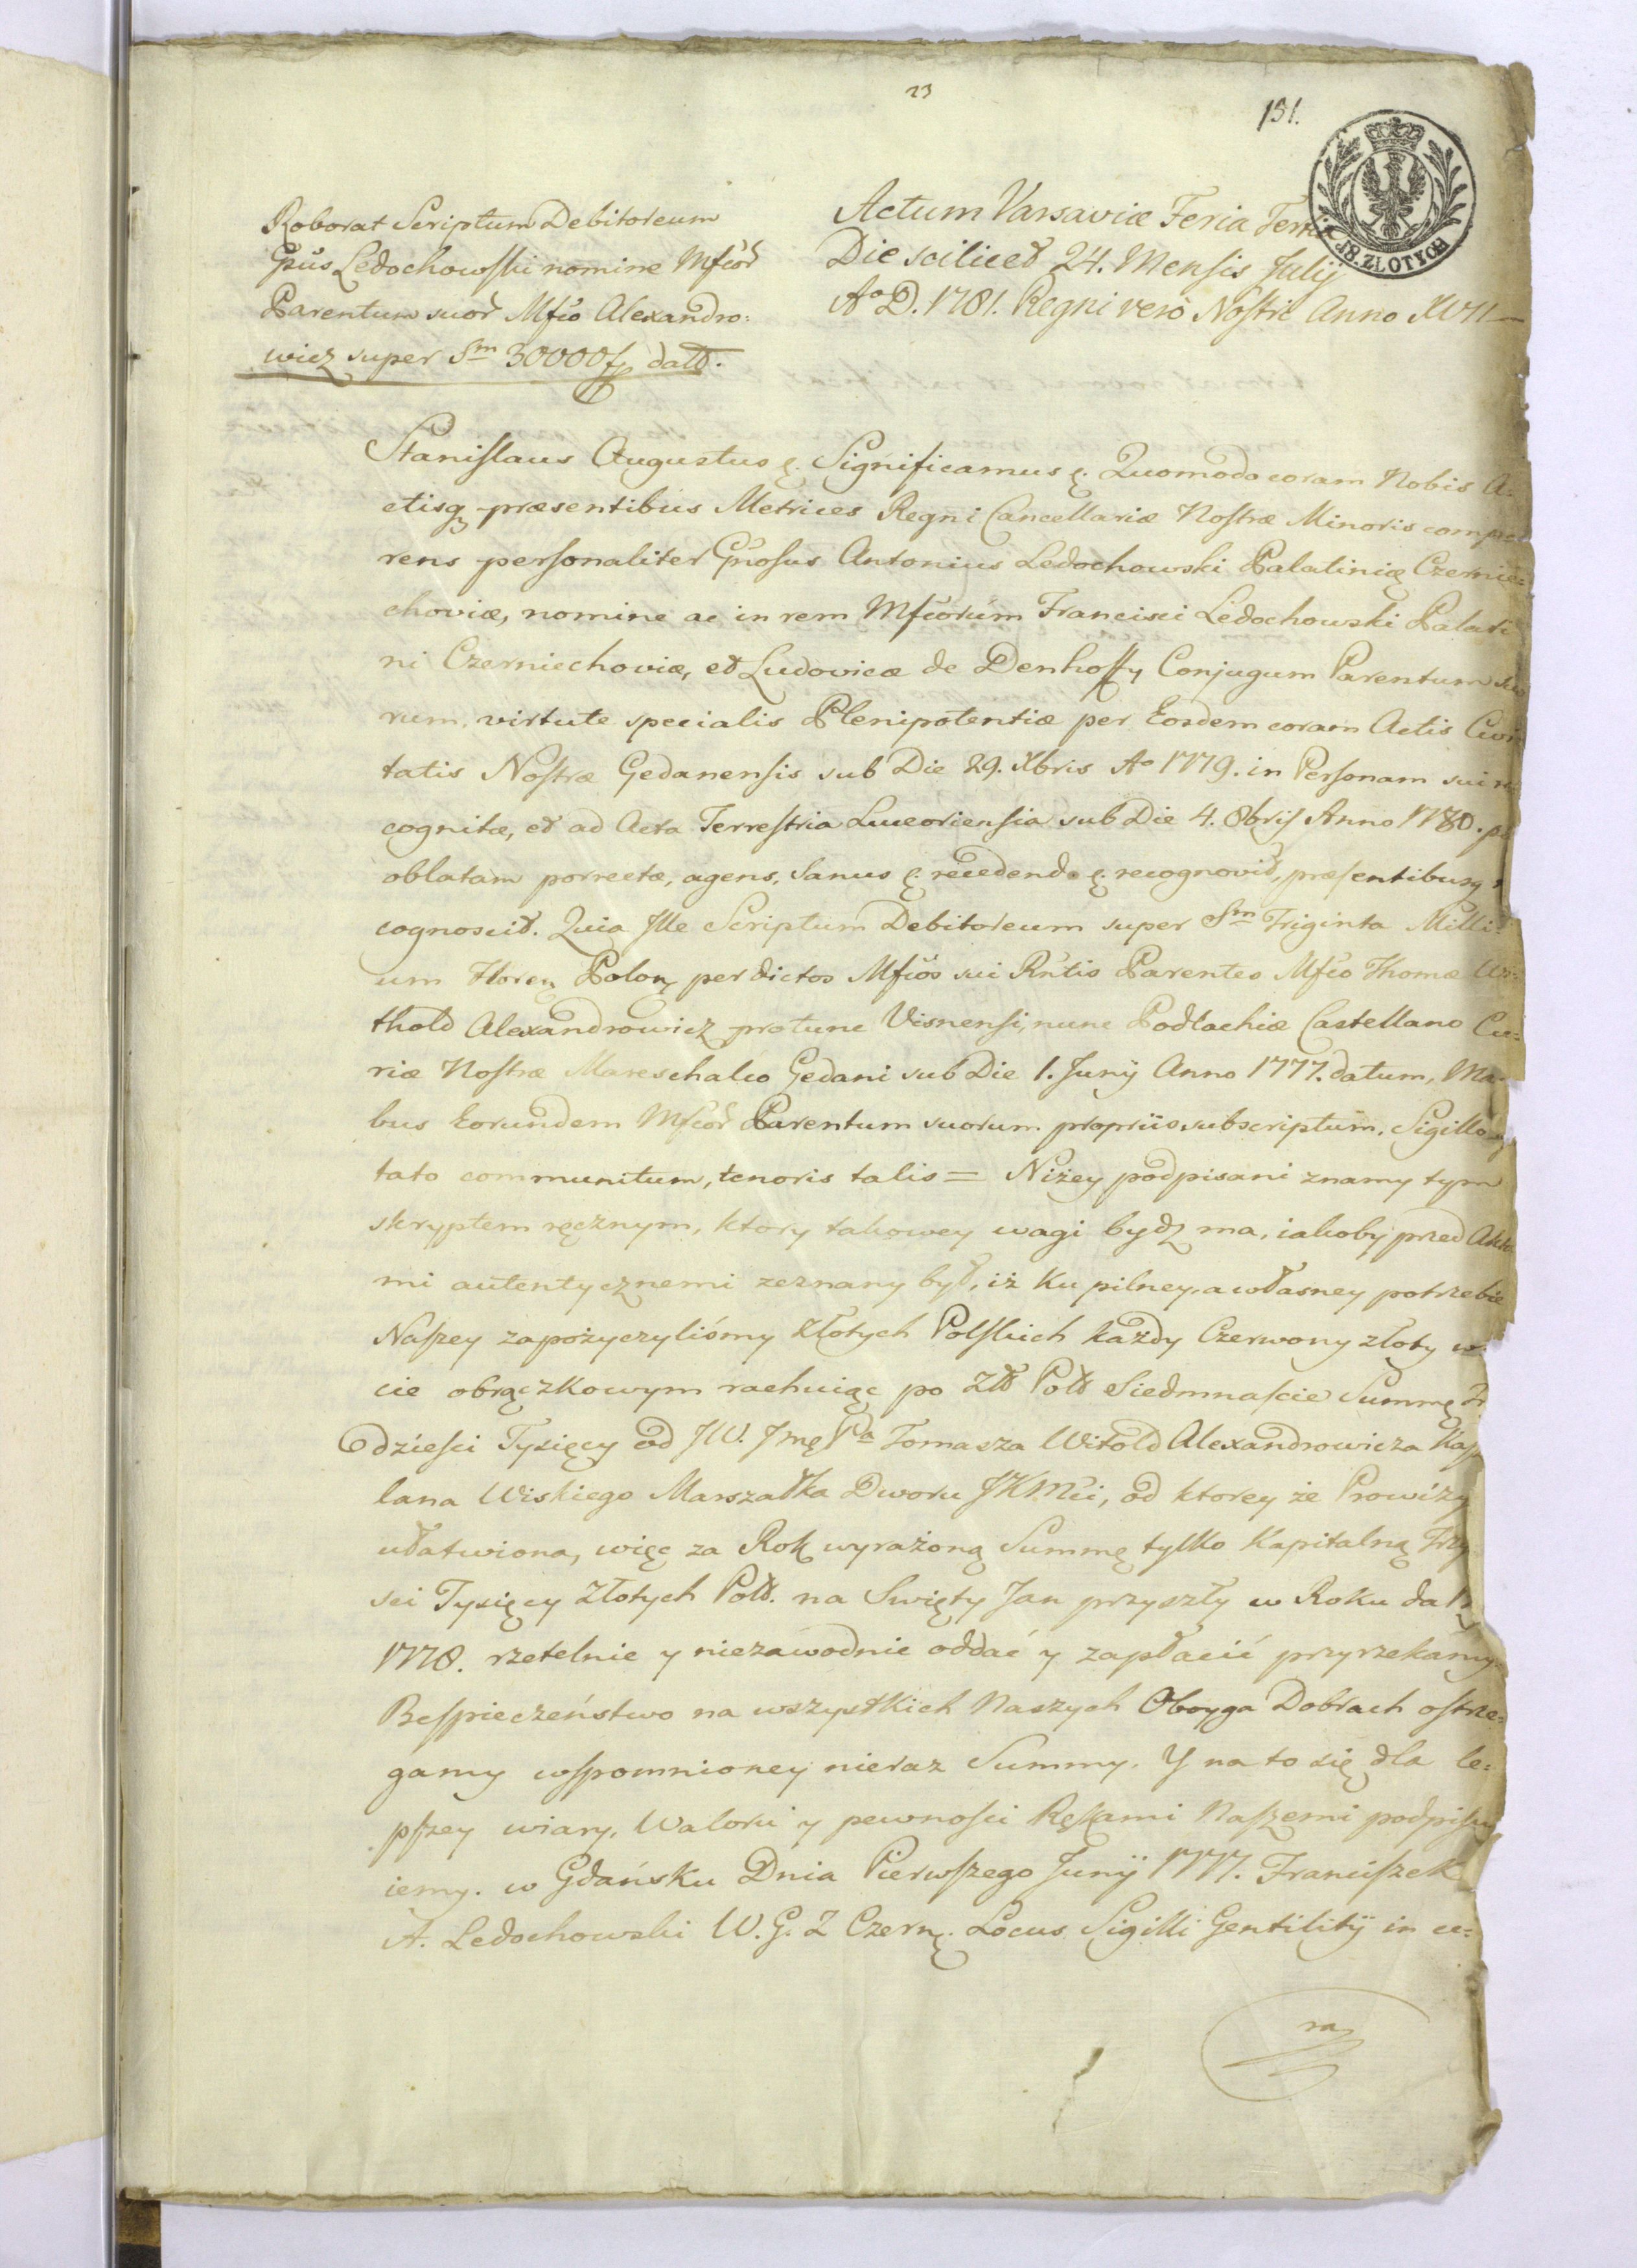 23
131.
18. ZŁOTYCH
Roborat Scriptum Debitoreum
Gnus Ledochowski nomine Mfcor
Parentum suor Mfco Alexandro:
wicz super Sm 30000 f datt.
Actum Varsaviæ Feria Tertia
Die scilicet 24. Mensis Julij
Ao D. 1781. Regni vero Nostri Anno XVII
Stanislaus Augustus Significamus Quomodo coram Nobis A:
ctisq præsentibus Metrices Regni Cancellariæ Nostræ Minoris compa
rens personaliter Gnosus Antonius Ledochowski Palatinię Czernie:
choviæ, nomine ac in rem Mfcorum Francisci Ledochowski Palati
ni Czerniechoviæ, et Ludovicæ de Denhoff Conjugum Parentum suo
rum, virtute specialis Plenipotentiæ per Eosdem coram Actis Civi
tatis Nostræ Gedanensis sub Die 29. Xbris Ao 1779. in Personam sui re
cognitæ, et ad Acta Terrestria Luceoriensia sub Die 4. 8bris Anno 1780. p
oblatam porrectæ, agens, Sanus recedendo recognovit, præsentibusq
cognoscit. Quia Ille Scriptum Debitoreum super Sm Triginta Milli:
um Floren Polon per dictos Mfcos sui Rntis Parentes Mfco Thomæ Wi:
thold Alexandrowicz protunc Visnensi, nunc Podlachiæ Castellano Cu:
riæ Nostræ Mareschalco Gedani sub Die 1. Junij Anno 1777. datum, Ma
bus Eorundem Mfcor Parentum suorum propriis subscriptum, Sigilloq
tato communitum, tenoris talis = Niżey podpisani znamy tym
skryptem ręcznym, ktory takowey wagi bydź ma, iakoby przed Akta
mi autentycznemi zeznany był, iż ku pilney, a własney potrzebie
Naszey zapożyczyliśmy Złotych Polskich każdy Czerwony złoty w
cie obrączkowym rachuiąc po Złt Polt Siedmnaście Summę Tr
dzieści Tysięcy od JW. Jmę Pa Tomasza Witold Alexandrowicza Kasz
lana Wiskiego Marszałka Dworu JKMci, od ktorey że Prowizya
ułatwiona, więc za Rok wyrażoną Summę tylko Kapitalną Trzy
sci Tysięcy Złotych Polt. na Swięty Jan przyszły w Roku da
1778. rzetelnie y niezawodnie oddać y zapłacić przyrzekamy
Bespieczeństwo na wszystkich Naszych Oboyga Dobrach ostrze:
gamy wspomnioney nieraz Summy. Y na to się dla le:
pszey wiary, Waloru y pewności Rękami Naszemi podpisu
iemy. w Gdańsku Dnia Pierwszego Junij 1777. Franciszek
A. Ledochowski W. G. Z Czern. Locus Sigilli Gentilitij in ce:
ra